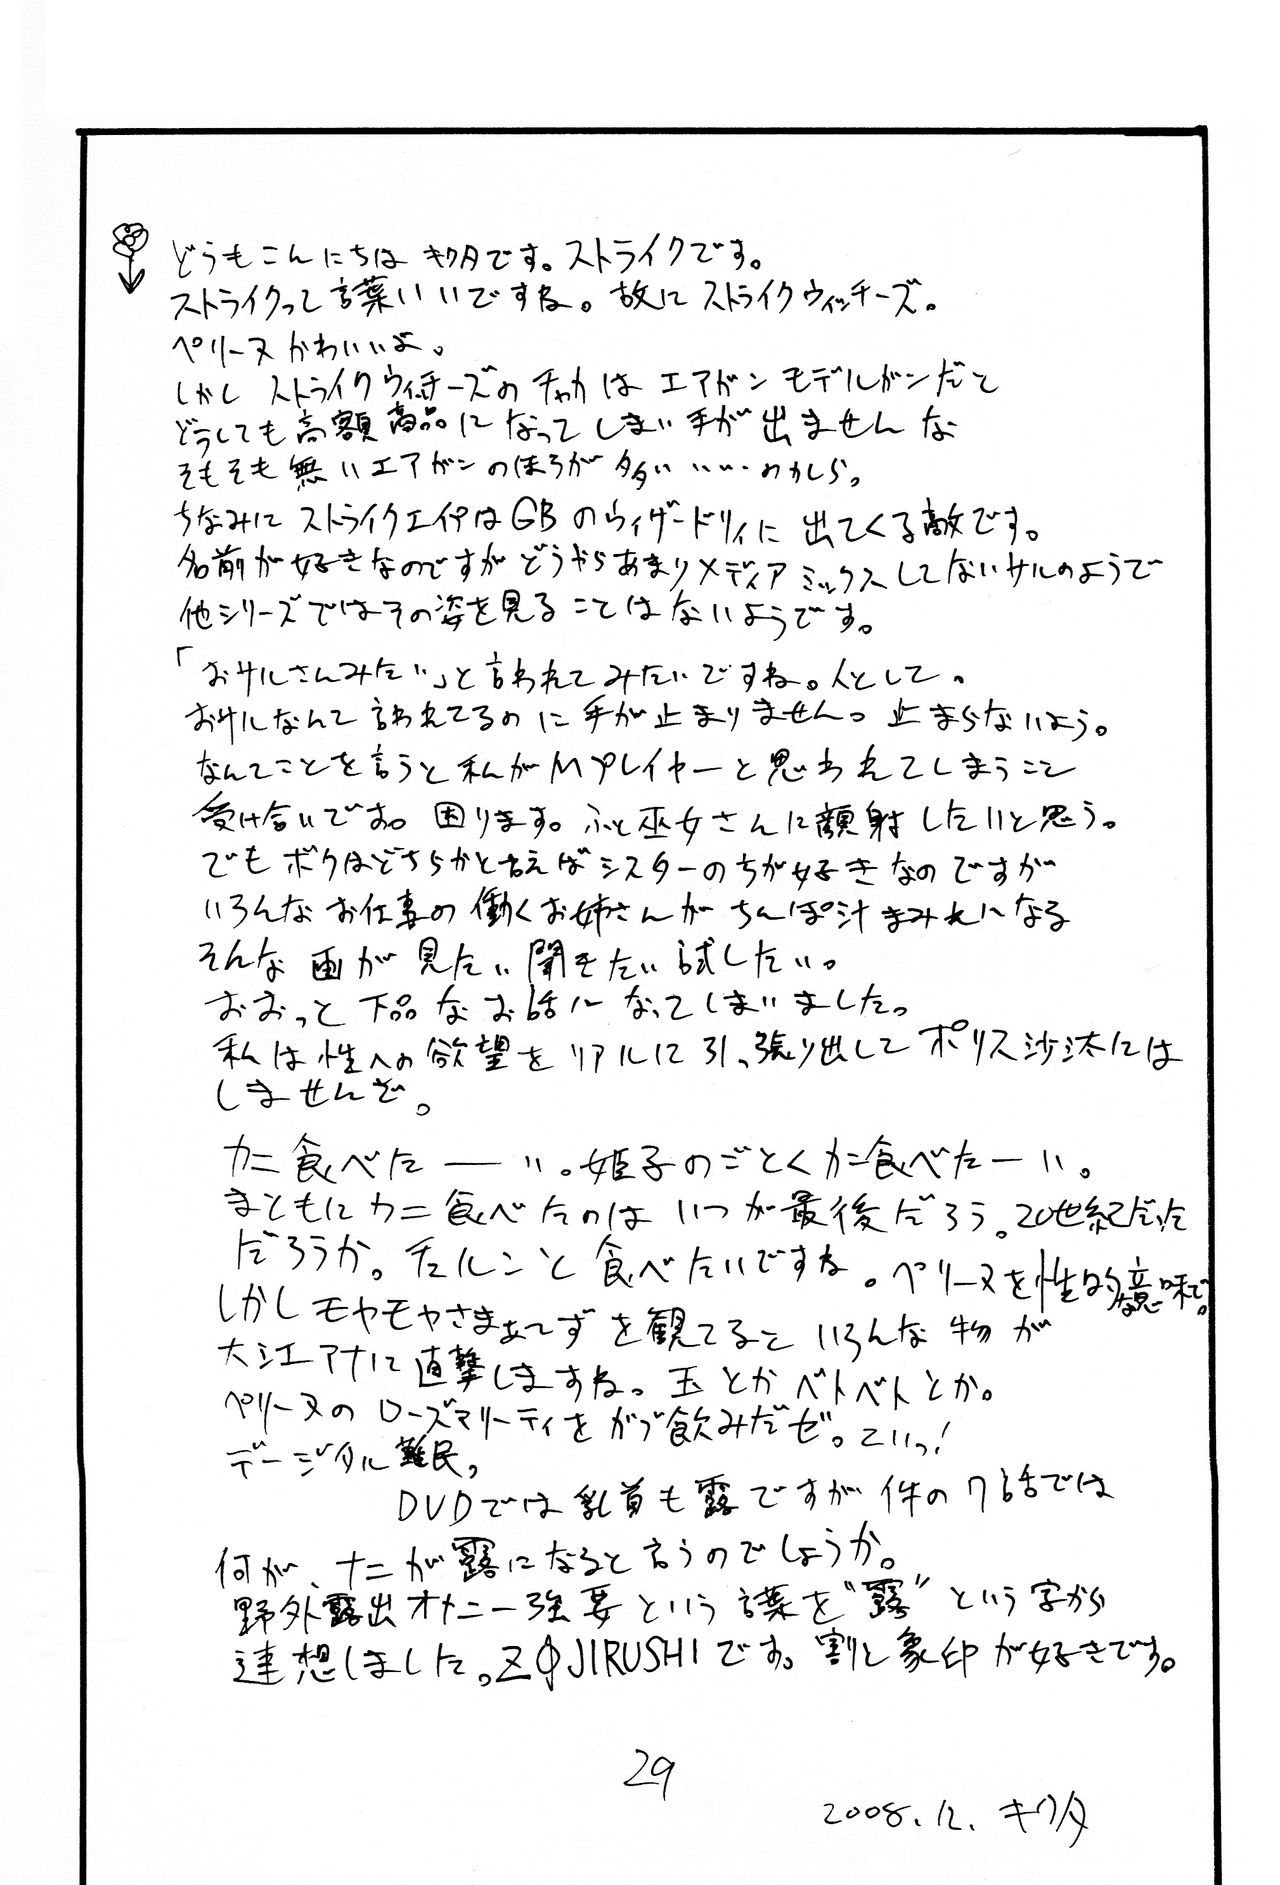 どうもこんにちは キクタです。ストライクです。
ストライクって言葉いいですね。故にストライクウィッチーズ。
ペリーヌかわいいよ。
しかしストライクウィッチーズのチャカはエアガンモデルガンだと
どうしても高額商品になってしまい手が出ませんな
そもそも無いエアガンのほうが多い・・・かしら。
ちなみにストライクエイプはGBのウィザードリィに出てくる敵です。
名前が好きなのですがどうやらあまりメディアミックスしてないサルのようで
他シリーズではその姿を見ることはないようです。
「おサルさんみたい」と言われてみたいですね。人として。
おサルなんて言われてるのに手が止まりません。止まらないよう。
なんてことを言うと私がMプレイヤーと思われてしまうこと
受け合いです。困ります。ふと巫女さんに顔射したいと思う。
でもボクはどちらかと言えばシスターのちが好きなのですが
いろんなお仕事の働くお姉さんがちんぽ汁まみれになる
そんな画が見たい聞きたい試したい。
おおっと下品なお話になってしまいました。
私は性への欲望をリアルに引っ張り出してポリス沙汰には
しませんぞ。
カニ食べたーい。姫子のごとくカニ食べたーい。
まともにカニ食べたのはいつが最後だろう。20世紀だった
だろうか。チュルンと食べたいですね。ペリーヌを性的な意味で。
しかしモヤモヤさまぁ~ずを観てるといろんな物が
大江アナに直撃しますね。玉とかベトベトとか。
ペリーヌのローズマリーティをがぶ飲みだぜ。こいっ!
デージタル難民。
DVDでは乳首も露ですが件の7話では
何が、ナニが露になると言うのでしょうか。
野外露出オナニー強要という言葉を"露"という字から
連想しました。ZΦJIRUSHIです。割と象印が好きです。
29
2008.12. キクタ